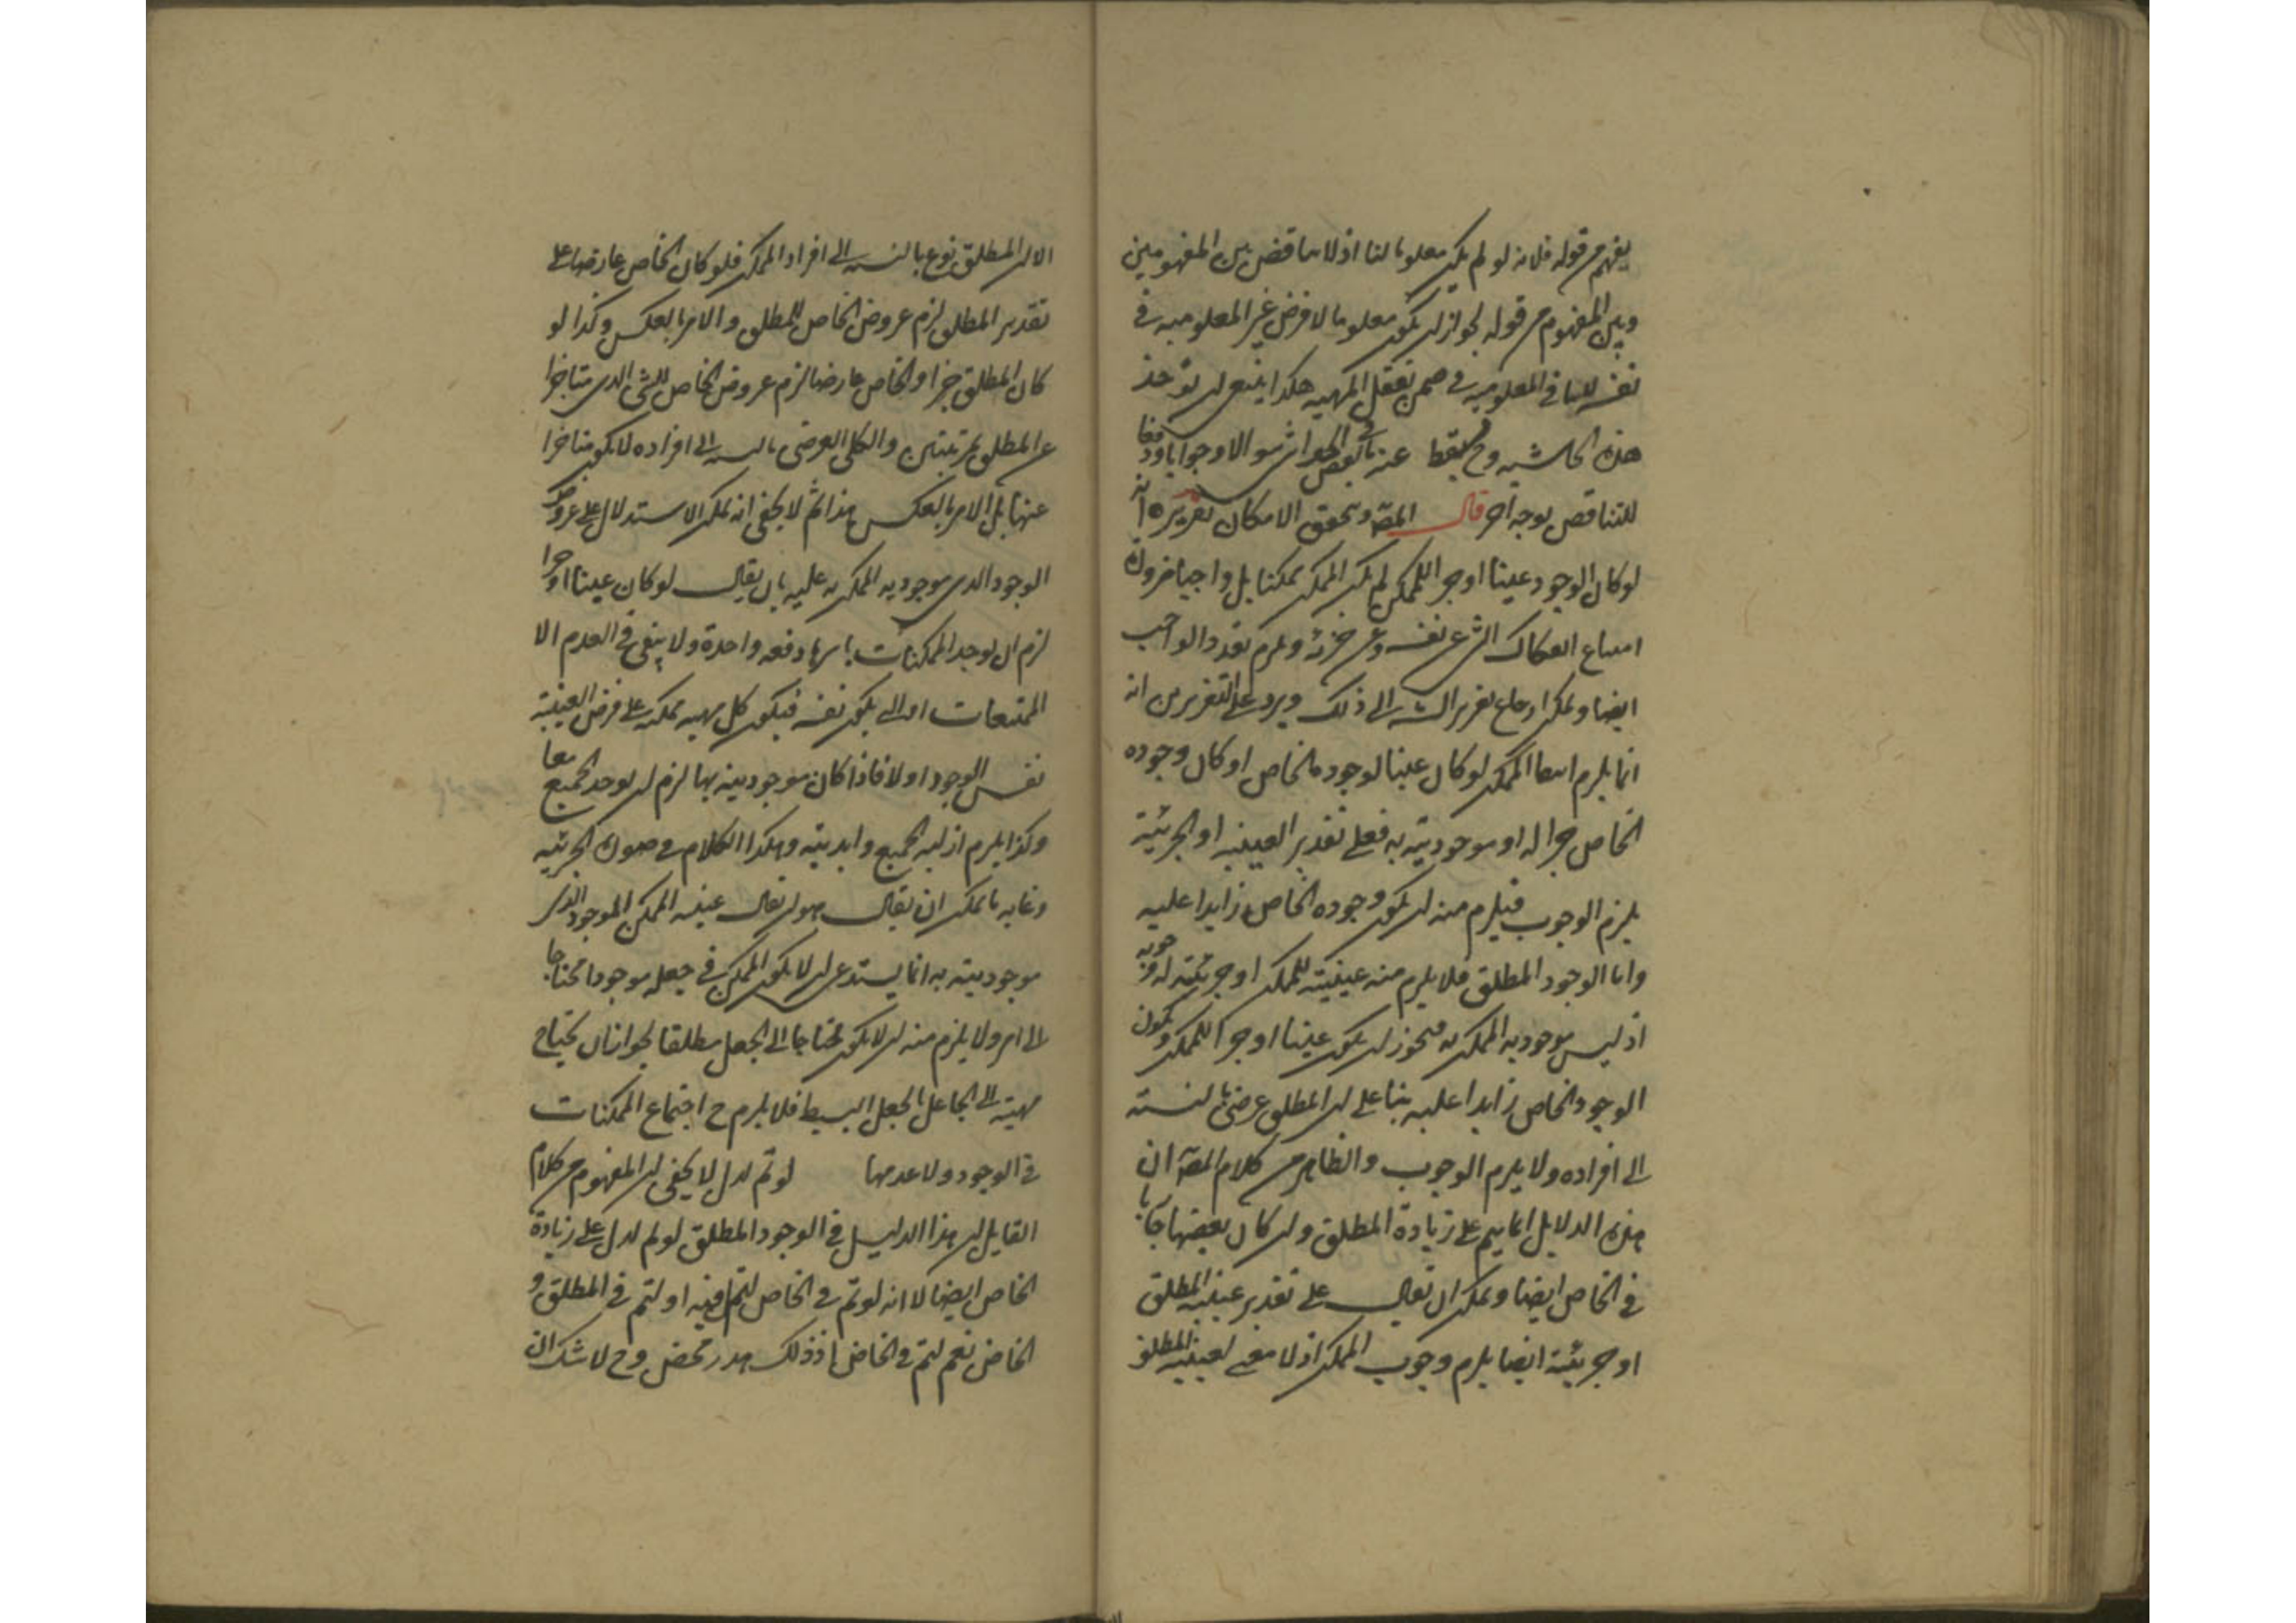 يفهم من قوله فلانه لو لم يكن معلوما لنا اذ لا تناقض بين المفهومين
وبين المفهوم من قوله لجواز ان يكون معلوما لا فرض غير المعلومية في
نفسه المعلومية في ضمن تعقل المهية هكذا ينبغي ان تؤخذ
هذه الحاشية وح يسقط عنه ما في بعض الحواشي سوالا وجوابا ودفعا
للتناقض بوجه آخر قال المصـ وتحقق الامكان تقريره انه
لو كان الوجود عينا او جزءا للممكن لم يكن الممكن ممكنا بل واجبا ضرورة
امتناع انفكاك الشيء عن نفسه وعن جزئه ويلزم تعدد الواجب
ايضا ويمكن ارجاع تقرير الشـ الى ذلك ويرد على التقريرين انه
انما يلزم انتفاء الممكن لو كان عينا لوجوده الخاص او كان وجوده
الخاص جزءا له او موجوديته به فعلى تقدير العينية او الجزئية
يلزم الوجوب فيلزم منه ان يكون وجوده الخاص زايدا عليه
واما الوجود المطلق فلا يلزم منه عينيته للممكن او جزئيته له وجوبه
اذ ليس موجودية الممكن به فيجوز ان يكون عينا او جزءا للممكن ويكون
الوجود الخاص زايدا عليه بناء على ان المطلق عرضي بالنسبة
الى افراده ولا يلزم الوجوب والظاهر من كلام المصـ ان
هذه الدلايل انما يتم على زيادة المطلق وان كان بعضها جاريا
في الخاص ايضا ويمكن ان يقال على تقدير عينية المطلق
او جزئيته ايضا يلزم وجوب الممكن اذ لا معنى لعينية المطلق
الا ان المطلق نوع بالنسبة الى افراد الممكن فلو كان الخاص عارضا على
تقدير المطلق لزم عروض الخاص للمطلق والامر بالعكس وكذا لو
كان المطلق جزءا والخاص عارضا لزم عروض الخاص للشيء الذي متاخرا
عن المطلق بمرتبتين والكلي العرضي بالنسبة الى افراده لا يكون متاخرا
عنها بل الامر بالعكس هذا ثم لا يخفى انه يمكن الاستدلال على عروض
الوجود الذي موجودية الممكن به عليه بان يقال لو كان عينا او جزءا
لزم ان يوجد الممكنات باسرها دفعة واحدة ولا يبقى في العدم الا
الممتنعات فيكون كل مهية ممكنة على فرض العينية
نفس الوجود اولا فاذا كان موجوديته بها لزم ان يوجد الجميع معا
وكذا يلزم ازلية الجميع وابديته وهكذا الكلام في صورة الجزئية
وغاية ما يمكن ان يقال هو ان يقال عينية الممكن الموجود الذي
موجوديته به انما يستدعي ان لا يكون الممكن في جعله موجودا محتاجا
الى امر ولا يلزم منه ان لا يكون محتاجا الى الجعل مطلقا لجواز ان يحتاج
مهيته الى الجاعل الجعل البسيط فلا يلزم ح اجتماع الممكنات
في الوجود ولا عدمها لو تم لدل لا يخفى ان المفهوم من كلام
القايل ان هذا الدليل في الوجود المطلق لو لم لدل على زيادة
الخاص ايضا لا انه لو تم في الخاص لتم فيه او لتم في المطلق و
الخاص نعم لتم في الخاص اذ ذلك هدر محض وح لا شك ان